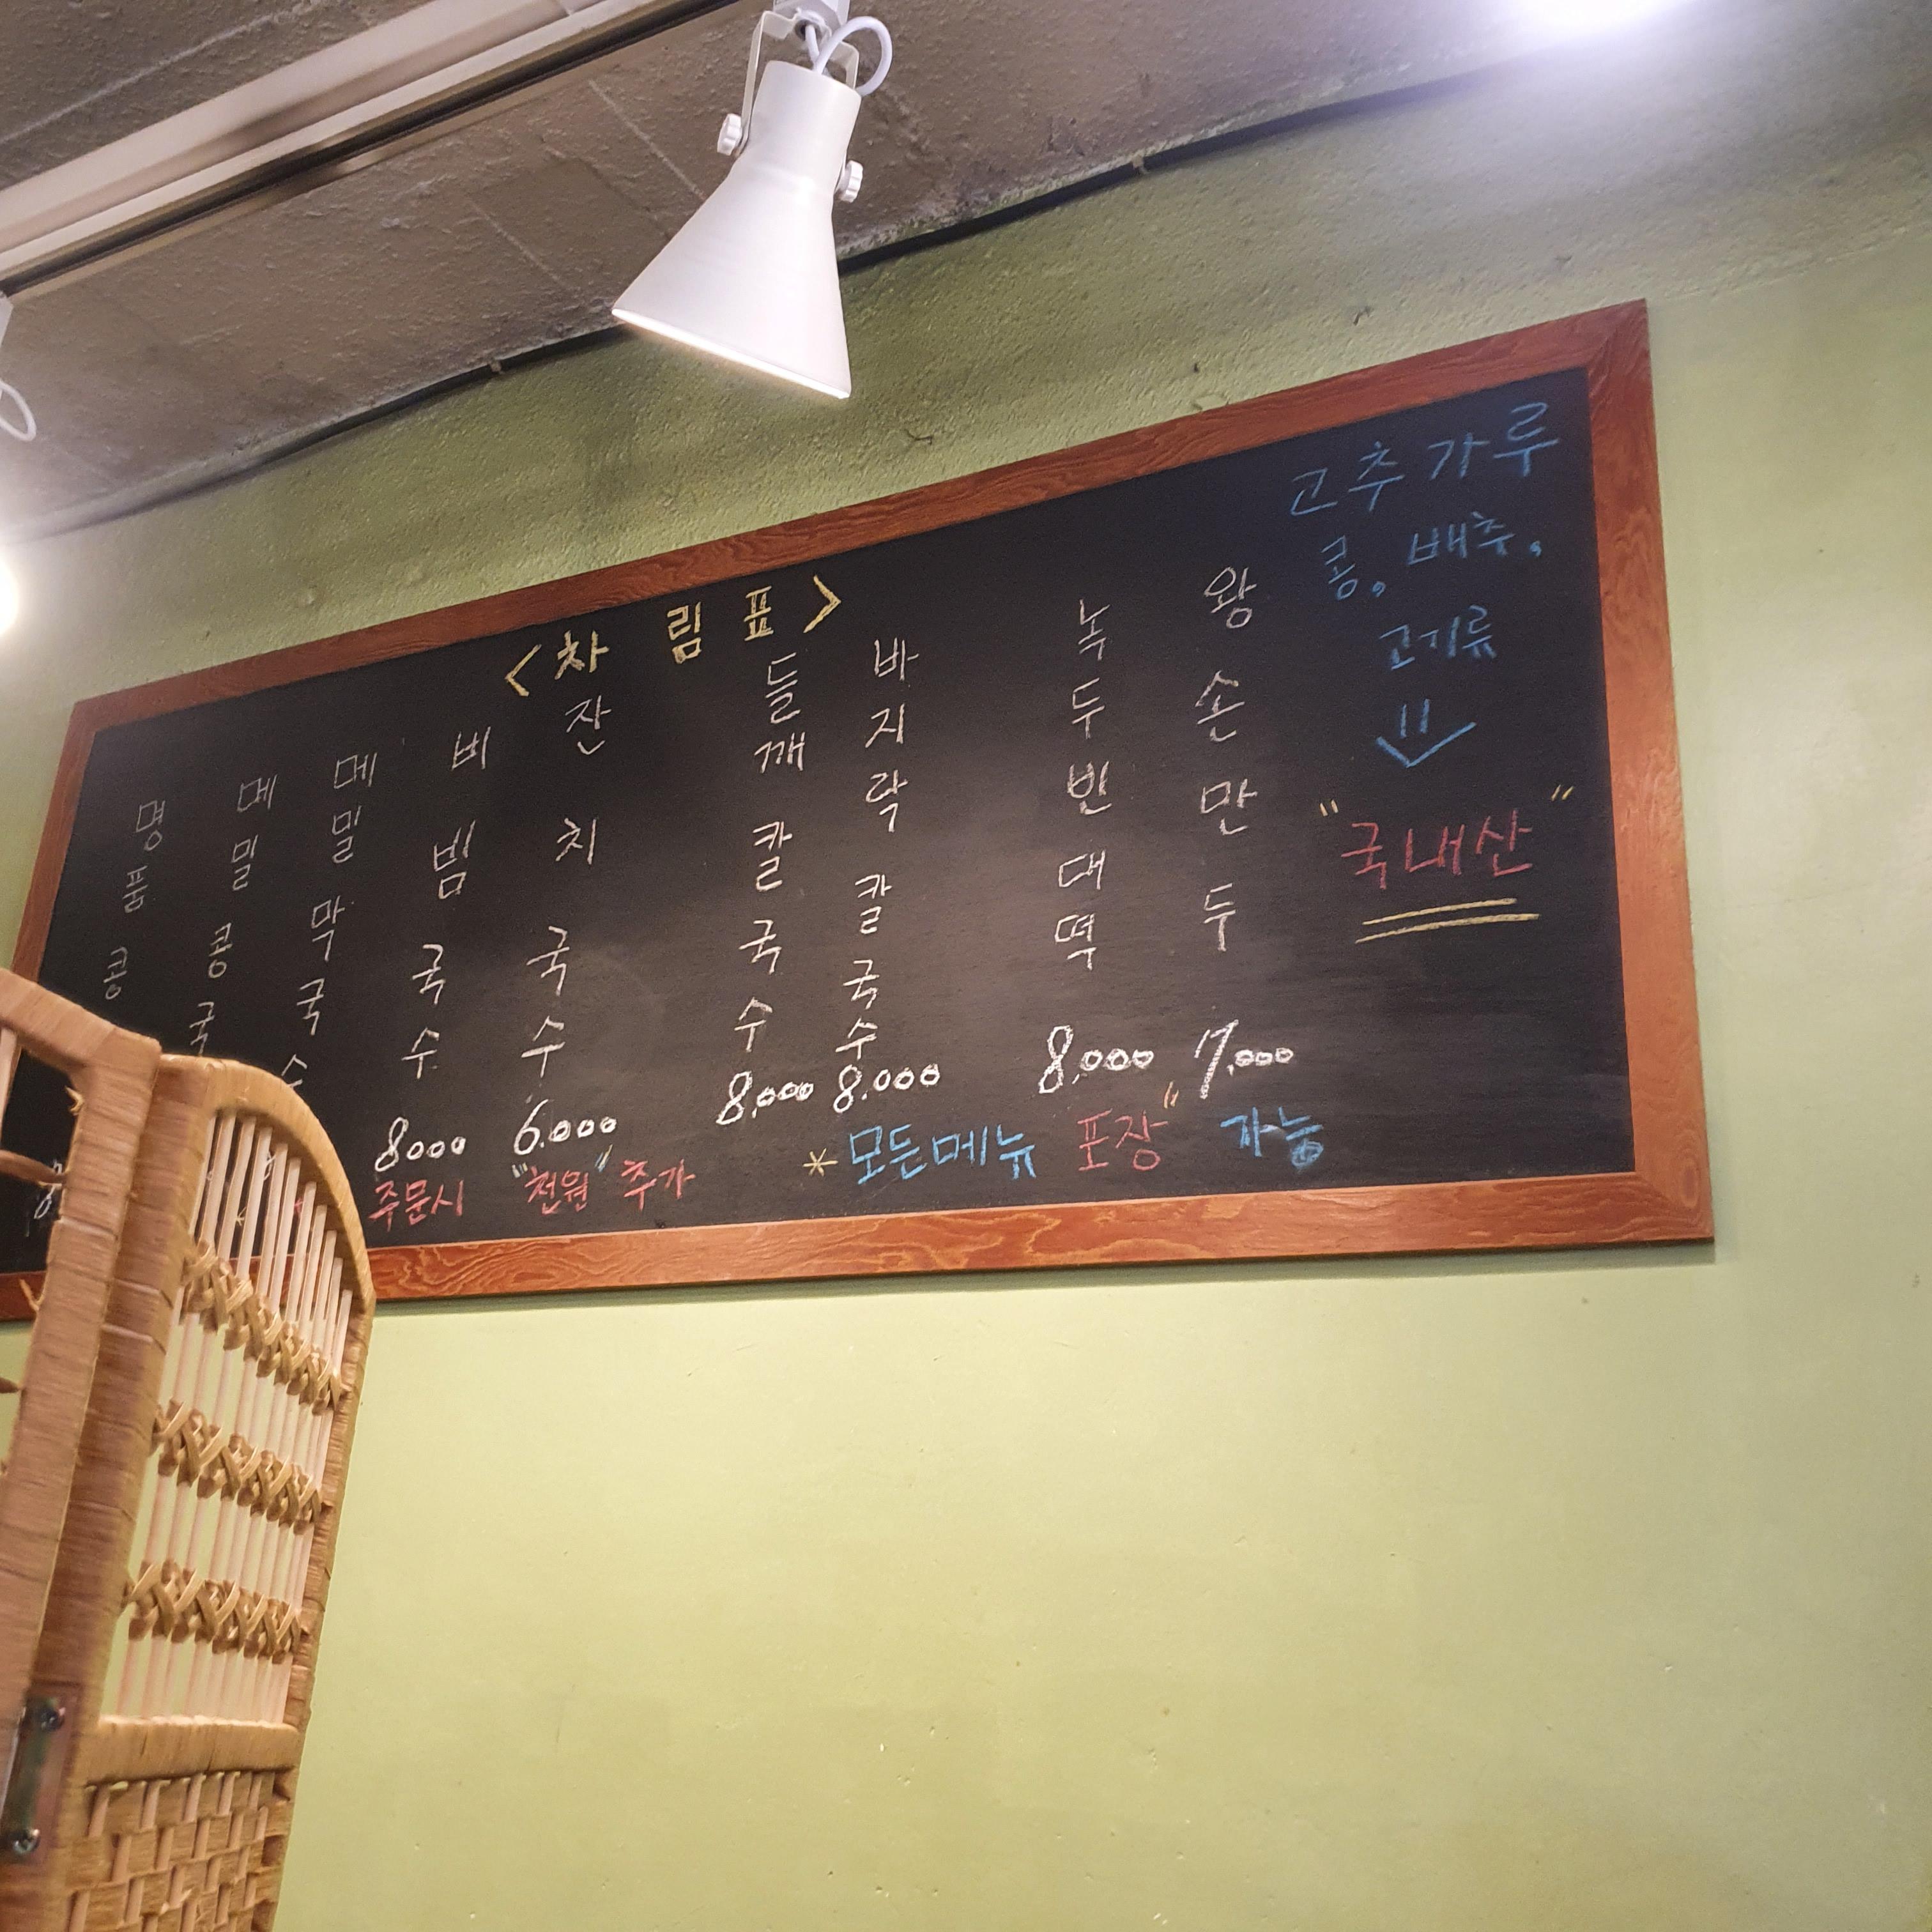 <차림표>
명품콩
메밀콩국
메밀막국수
비빔국수 8000
잔치국수 6.000
들깨칼국수 8,000
바지락칼국수 8.000
녹두빈대떡 8,000
왕손만두 7,000
고추가루
콩, 배추,
고기류
"국내산"
주문시 "천원" 추가
*모든메뉴 포장" 가능